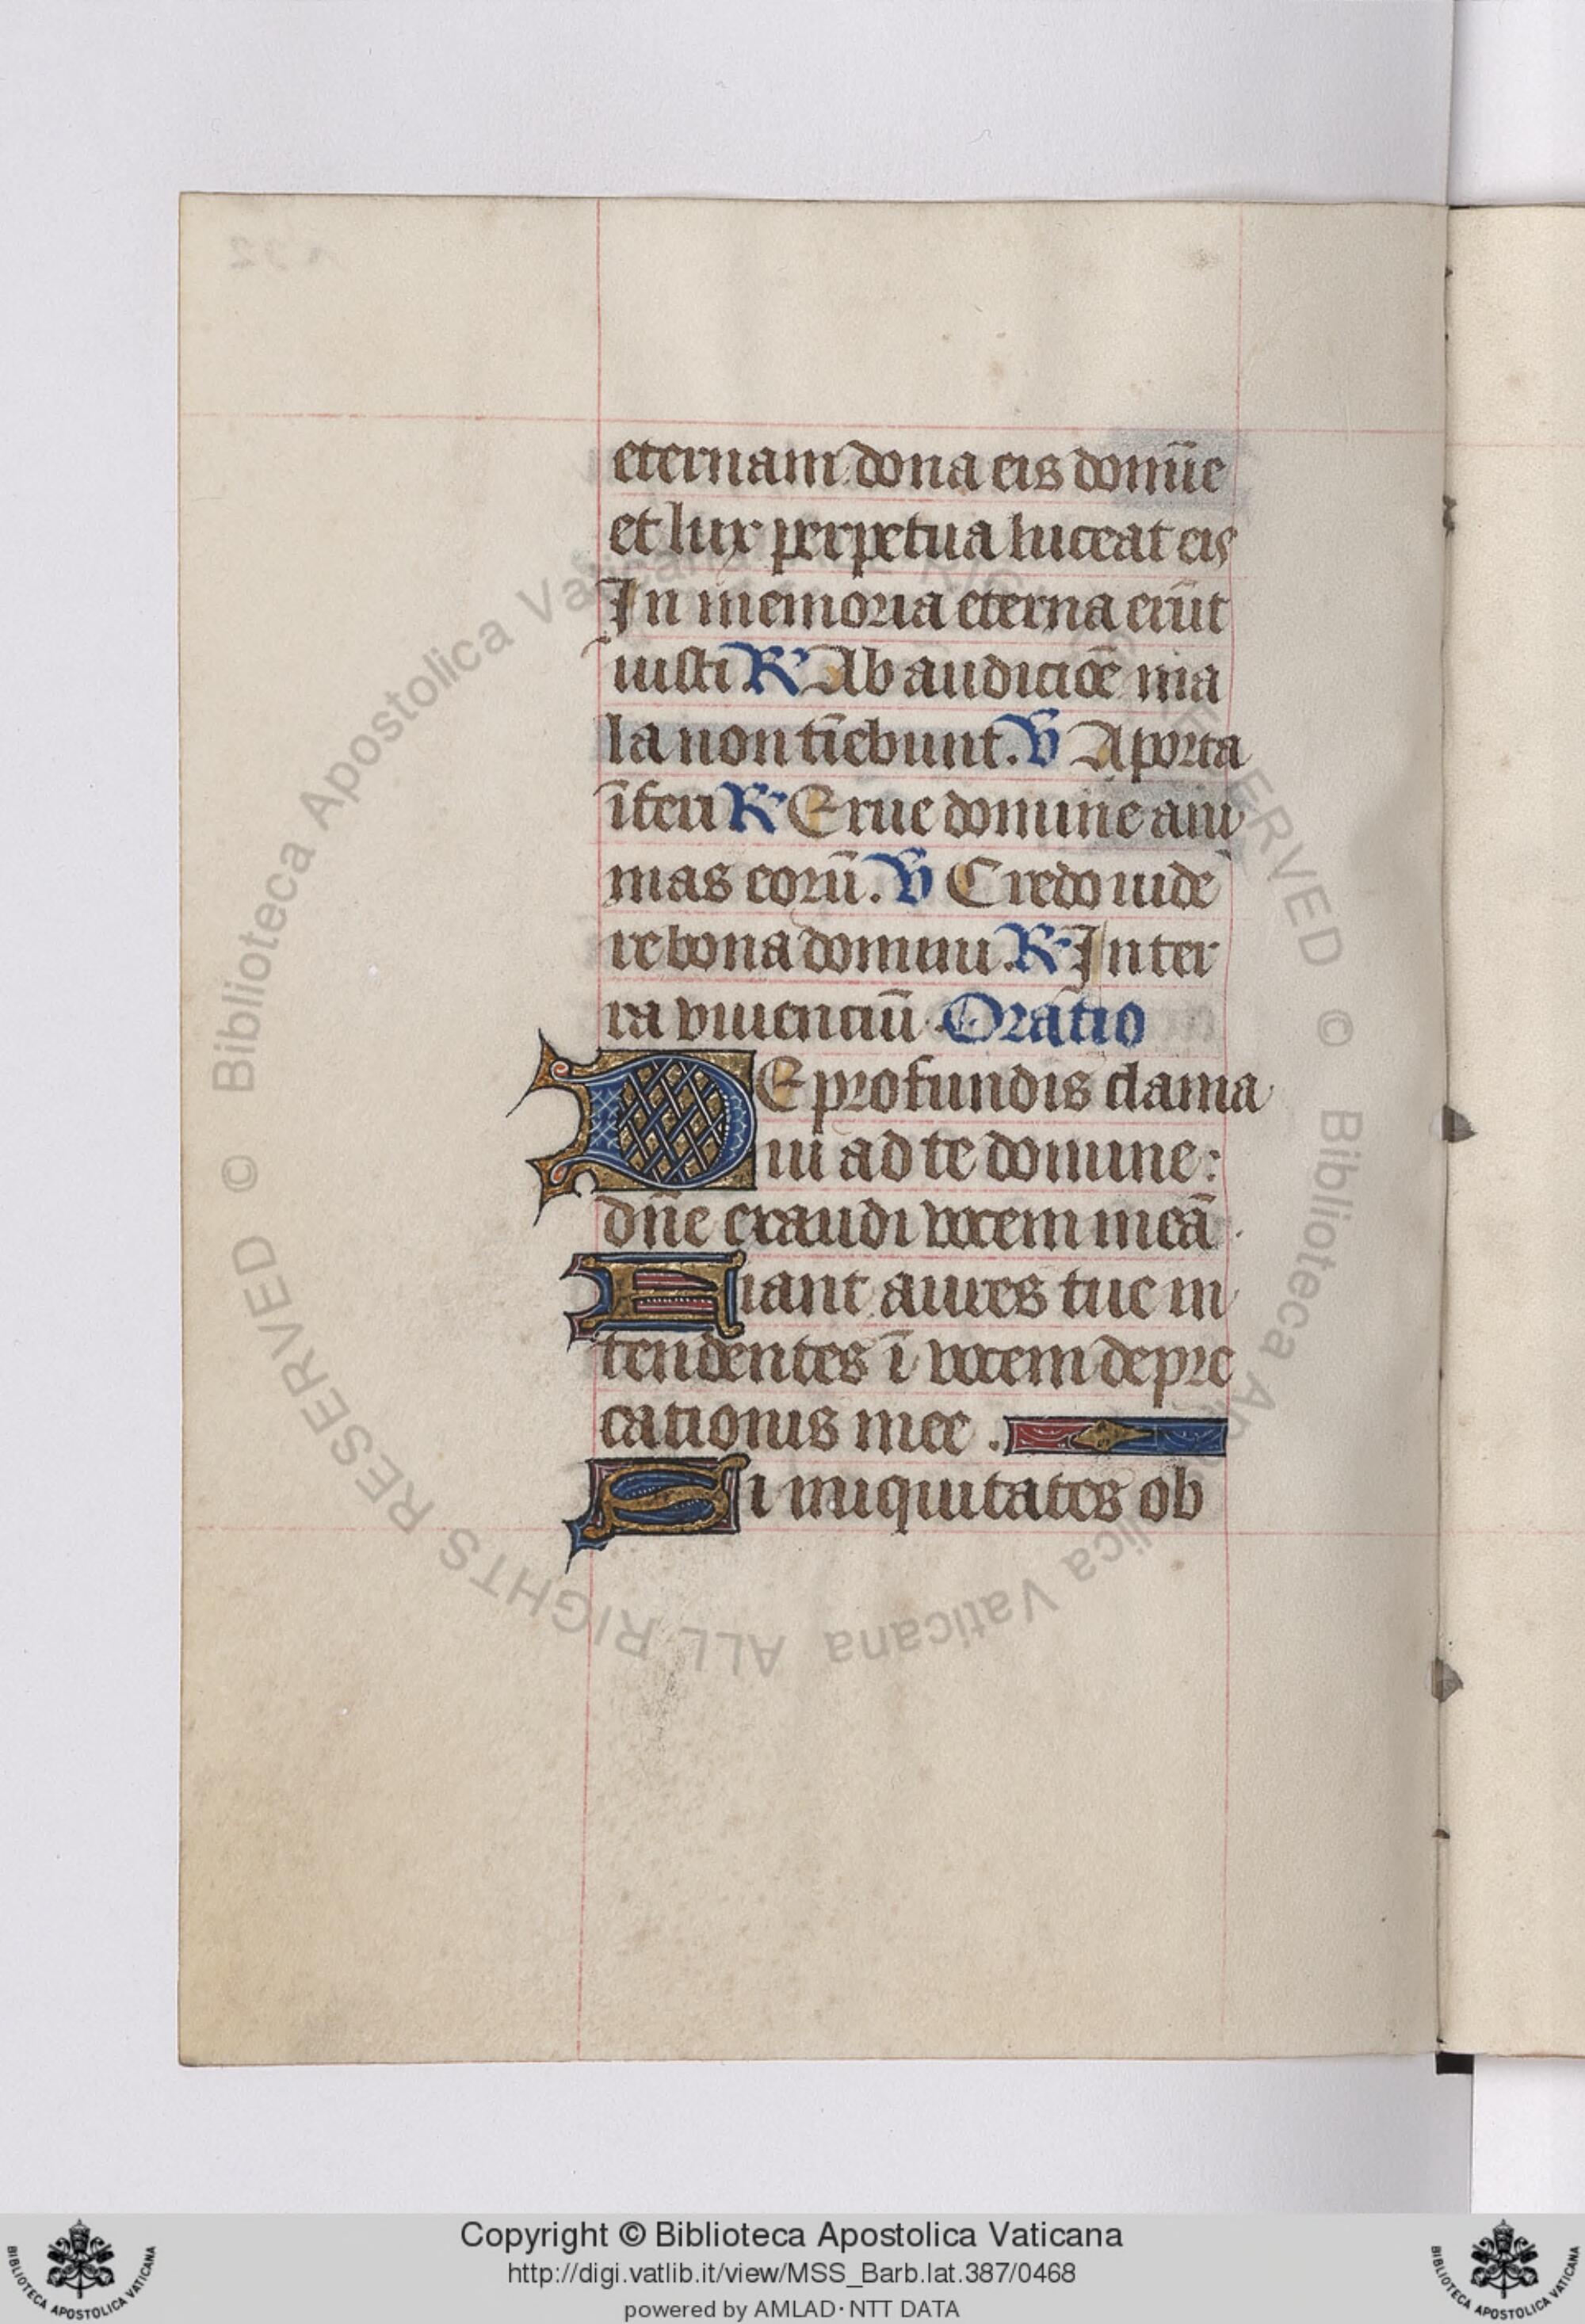 eternam dona eis domīe
et lux perpetua luceat eis
In memoria eterna erūt
iusti R Ab audicioē ma
la non tīebunt. V A porta
īferi R Erue domine ani
mas eorū. V Credo uide
re bona domini. R In ter
ra viuenciū Oratio
DE profundis clama
ui ad te domine:
dn̄e exaudi vocem meā
Fiant aures tue in
tendentes ī vocem depre
cationis mee.
Si iniquitates ob
© Biblioteca Apostolica Vaticana ALL RIGHTS RESERVED © Biblioteca Apostolica Vaticana ALL RIGHTS RESERVED
Copyright © Biblioteca Apostolica Vaticana
http://digi.vatlib.it/view/MSS_Barb.lat.387/0468
powered by AMLAD·NTT DATA
BIBLIOTECA APOSTOLICA VATICANA
BIBLIOTECA APOSTOLICA VATICANA